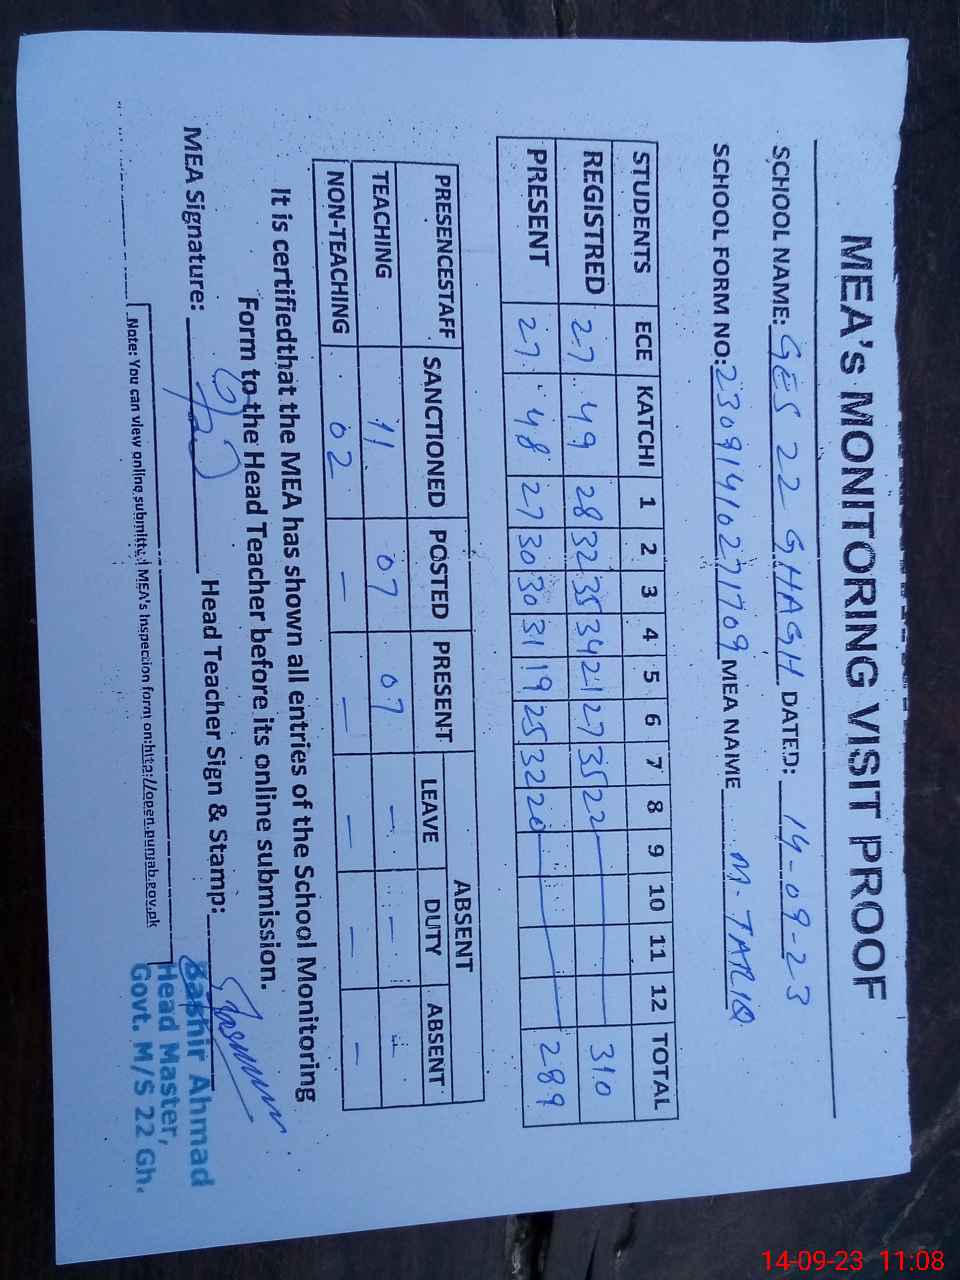 MEA's MONITORING VISIT PROOF
SCHOOL NAME: GES 22 GHAGH DATED: 14-09-23
SCHOOL FORM NO: 23091410271709 MEA NAME M. TARIQ
STUDENTS ECE KATCHI 1 2 3 4 5 6 7 8 9 10 11 12 TOTAL
REGISTRED 27 49 28 32 35 34 21 27 35 22 310
PRESENT 27 48 27 30 30 31 19 25 32 20 289
PRESENCESTAFF SANCTIONED POSTED PRESENT ABSENT
LEAVE DUTY ABSENT
TEACHING 11 07 07 - - -
NON-TEACHING 02 - - - - -
It is certifiedthat the MEA has shown all entries of the School Monitoring
Form to the Head Teacher before its online submission.
MEA Signature: Head Teacher Sign & Stamp:
Bashir Ahmad
Head Master,
Govt. M/S 22 Gh.
Note: You can view online submitted MEA's Inspection form on:http://open.punjab.gov.pk
14-09-23 11:08